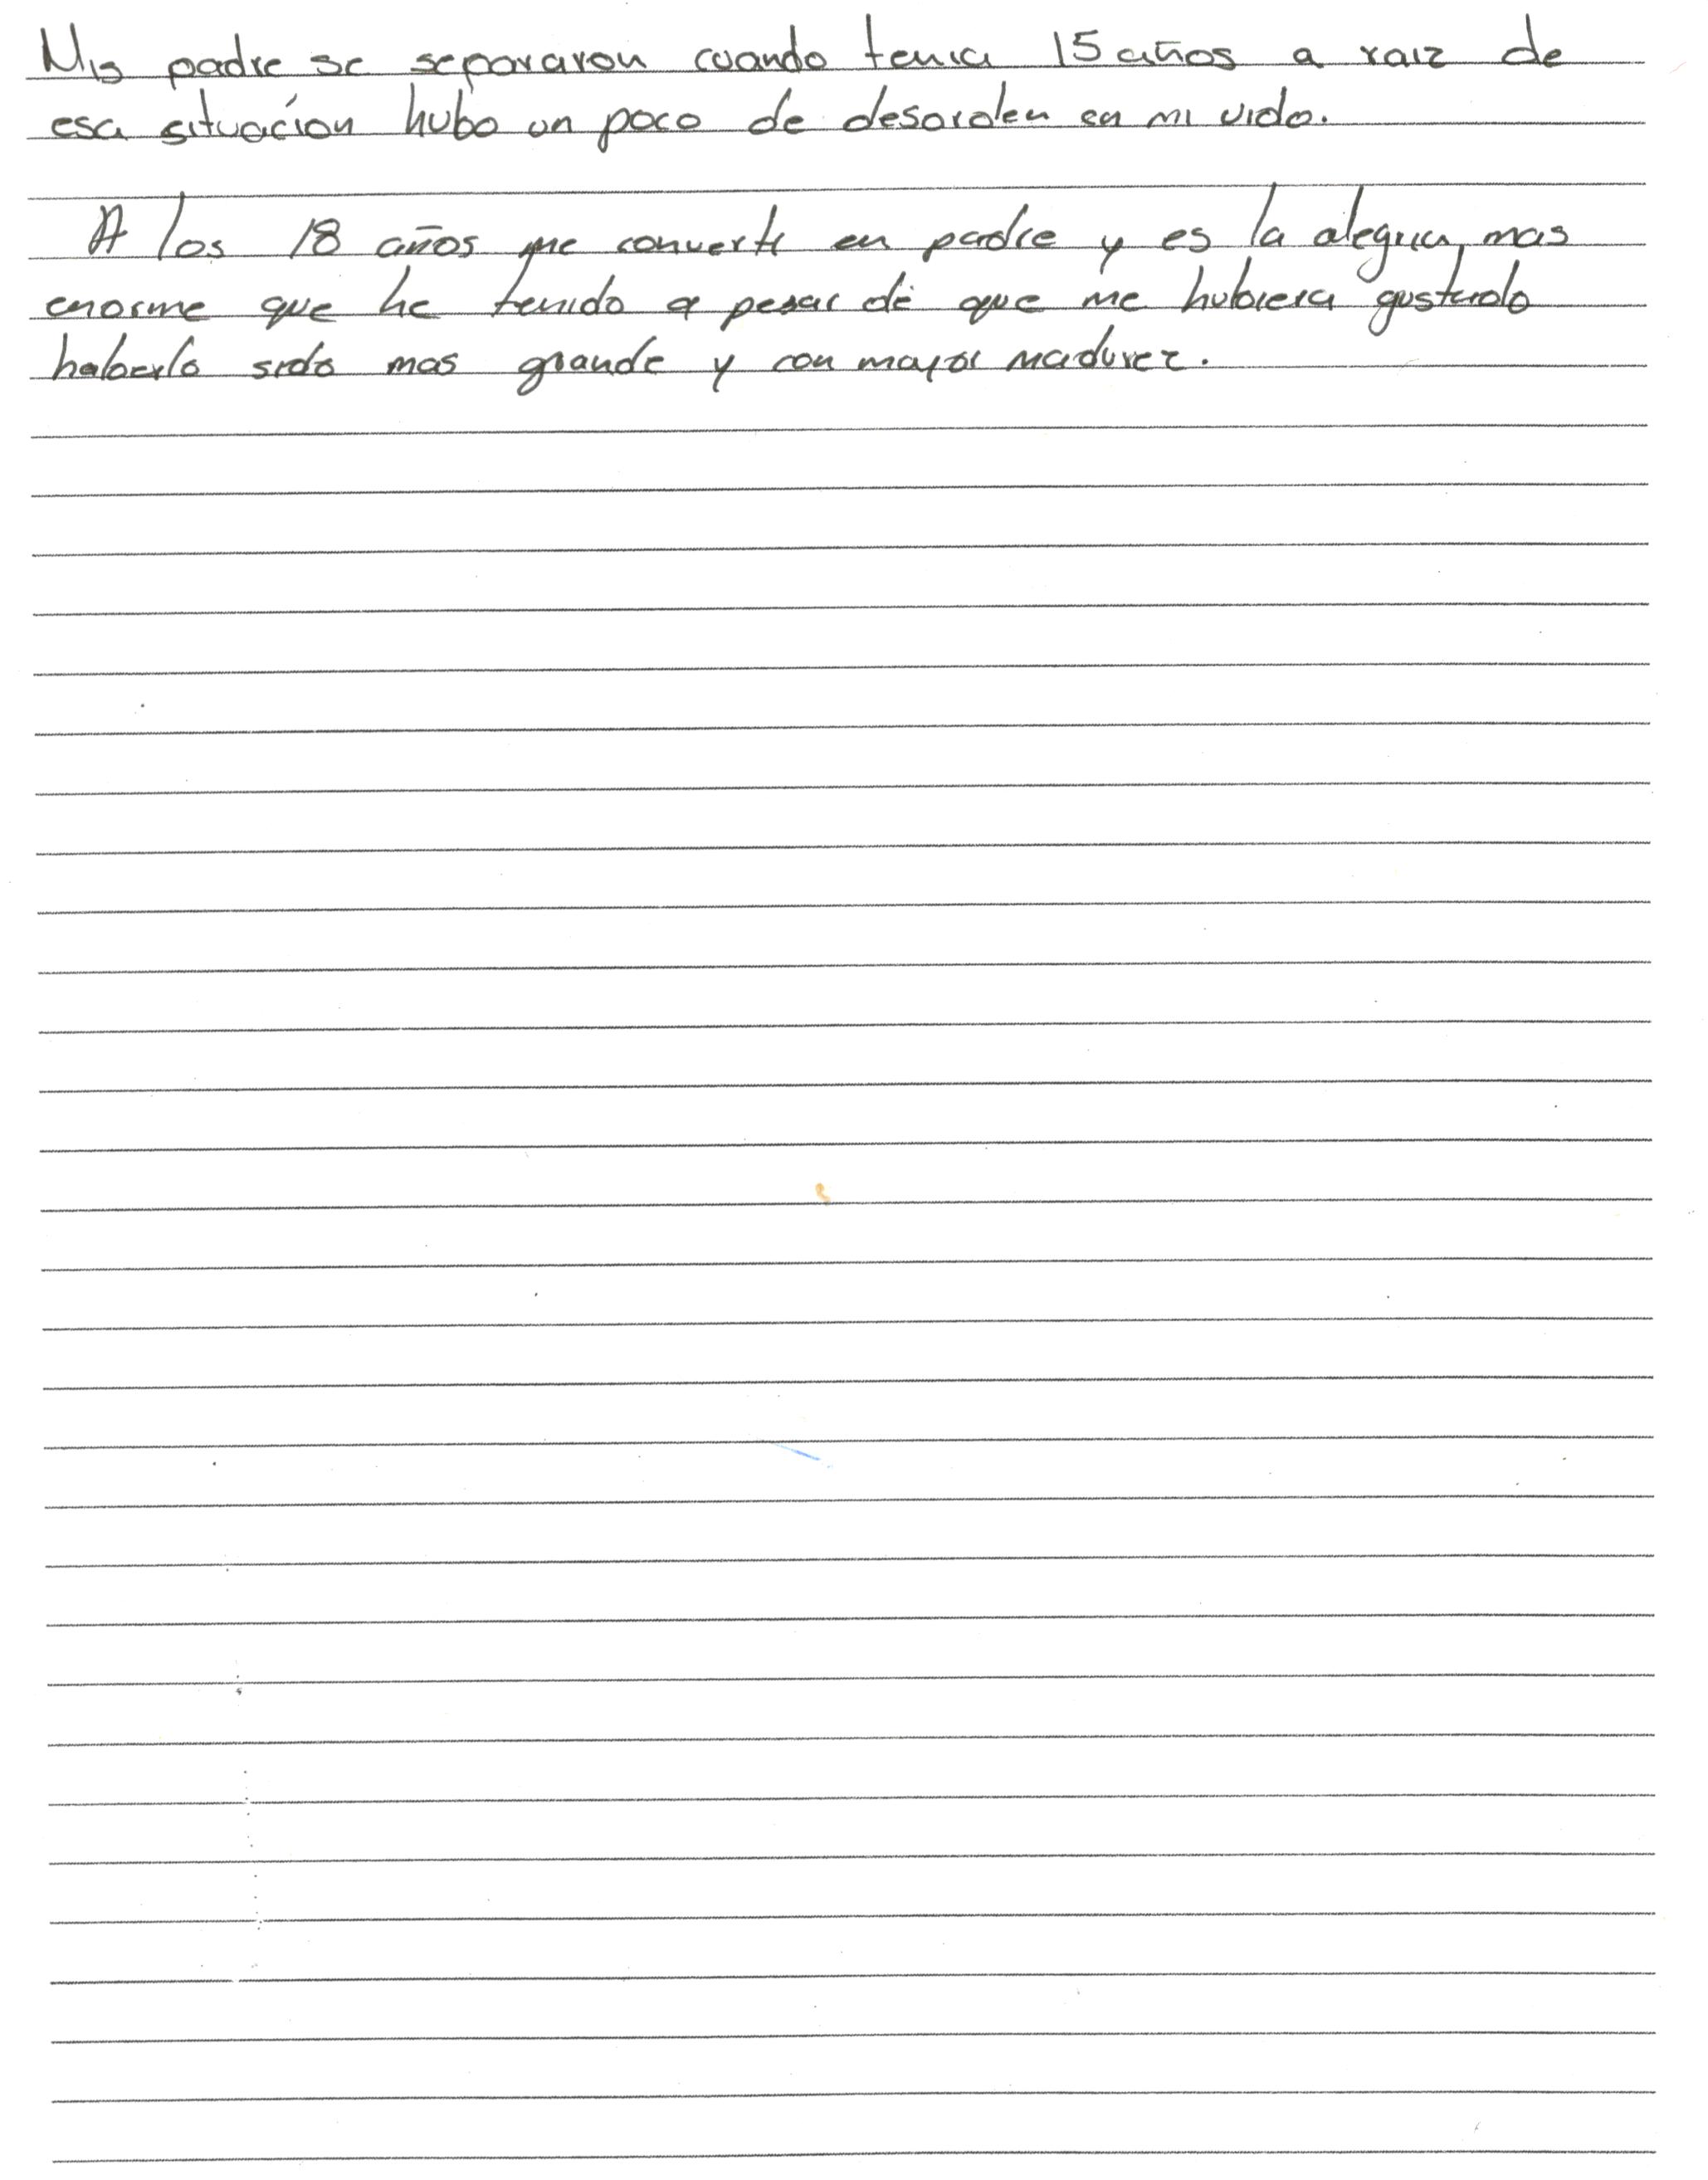 Mis padre se separaron cuando tenia 15 años a raiz de
esa situación hubo un poco de desorden en mi vida.
A los 18 años me converti en padre y es la alegria mas
enorme que he tenido a pesar de que me hubiera gustado
haberlo sido mas grande y con mayor madurez.